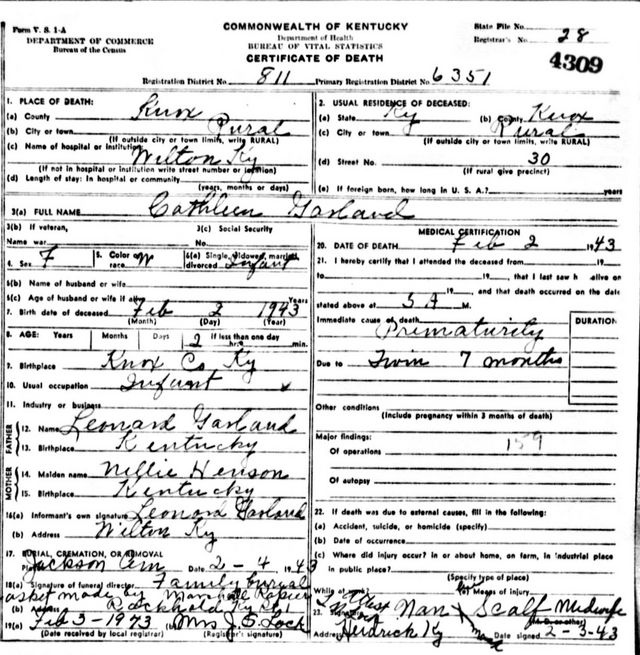 Form V. S. 1-A
DEPARTMENT OF COMMERCE
Bureau of the Census
COMMONWEALTH OF KENTUCKY
Department of Health
BUREAU OF VITAL STATISTICS
CERTIFICATE OF DEATH
State File No.
Registrar's No. 28
4309
Registration District No. 811 Primary Registration District No. 6351
1. PLACE OF DEATH:
(a) County Knox
(b) City or town Rural
(If outside city or town limits, write RURAL)
(c) Name of hospital or institution
Wilton Ky
(If not in hospital or institution write street number or location)
(d) Length of stay: In hospital or community
(years, months or days)
2. USUAL RESIDENCE OF DECEASED:
(a) State Ky (b) County Knox
(c) City or town Rural
(If outside city or town limits, write RURAL)
(d) Street No. 30
(If rural give precinct)
(e) If foreign born, how long in U. S. A.? years
3(a) FULL NAME Cathleen Garland
3(b) If veteran,
Name war
3(c) Social Security
No.
4. Sex F
5. Color or race W
6(a) Single, widowed, married, divorced Infant
6(b) Name of husband or wife
6(c) Age of husband or wife if alive Years
7. Birth date of deceased Feb 2 1943
(Month) (Day) (Year)
8. AGE: Years Months Days If less than one day
2 hrs. min.
9. Birthplace Knox Co Ky
10. Usual occupation Infant
11. Industry or business
FATHER
12. Name Leonard Garland
13. Birthplace Kentucky
MOTHER
14. Maiden name Nillie Henson
15. Birthplace Kentucky
16(a) Informant's own signature Leonard Garland
(b) Address Wilton Ky
17. BURIAL, CREMATION, OR REMOVAL
Place Jackson Cem Date 2-4 1943
18(a) Signature of funeral director Family burial
casket made by Marshall
(b) Address Rockhold Ky
19(a) Feb 5-1943 (b) Mrs J. S. Lock
(Date received by local registrar) (Registrar's signature)
MEDICAL CERTIFICATION
20. DATE OF DEATH Feb 2 1943
21. I hereby certify that I attended the deceased from 19
to 19 , that I last saw h alive on
19 , and that death occurred on the date
stated above at 5 A M.
Immediate cause of death DURATION
Prematurity
Due to Twin 7 months
Other conditions
(Include pregnancy within 3 months of death)
Major findings: 159
Of operations
Of autopsy
22. If death was due to external causes, fill in the following:
(a) Accident, suicide, or homicide (specify)
(b) Date of occurrence
(c) Where did injury occur? in or about home, on farm, in industrial place
in public place?
(Specify type of place)
While at work? (e) Means of injury
23. Signature Nan Scalf Midwife
(M. D. or other)
Address Hedrick Ky Date signed 2-3-43